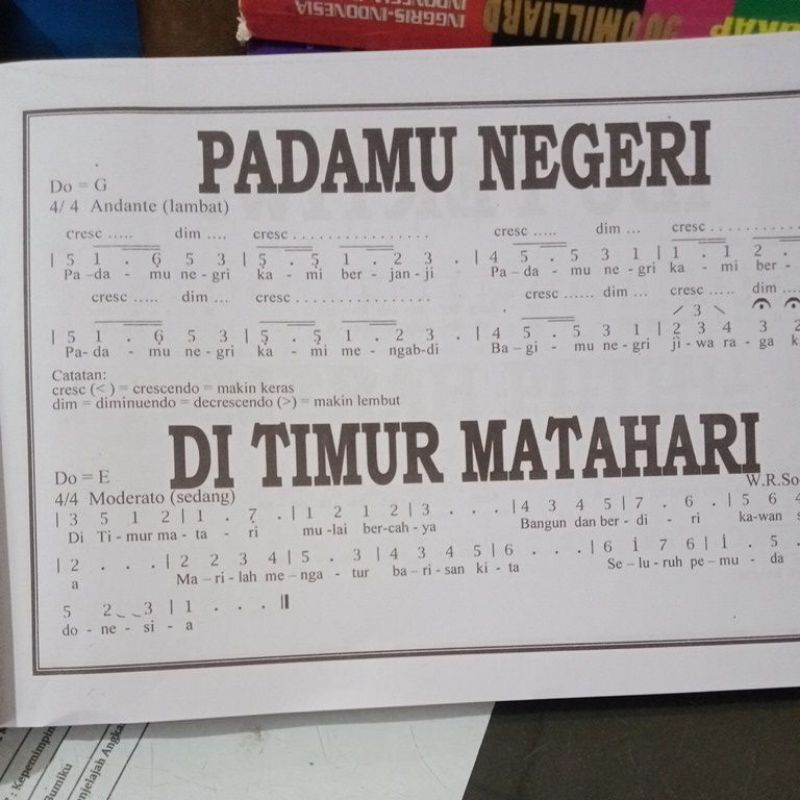 INGGRIS-INDONESIA
INDONESIA
50 MILLIARD
PADAMU NEGERI
Do = G
4/ 4 Andante (lambat)
cresc ..... dim .... cresc . . . . . . . . . . . . . . . . cresc ..... dim ... cresc . . . . . . . . . .
| 5 1 . 6̣ 5 3 | 5̣ . 5̣ 1 . 2 3 . | 4 5 . 5 3 1 | 1 . 1 2 .
Pa – da - mu ne - gri ka - mi ber - jan - ji Pa – da - mu ne - gri ka - mi ber -
cresc ..... dim ... cresc . . . . . . . . . . . . . . . . cresc ...... dim ... cresc ..... dim ...
3
| 5 1 . 6̣ 5 3 | 5̣ . 5̣ 1 . 2 3 . | 4 5 . 5 3 1 | 2 3 4 3 2
Pa- da - mu ne - gri ka - mi me - ngab-di Ba – gi - mu ne - gri ji - wa ra - ga
Catatan:
cresc (< ) = crescendo = makin keras
dim = diminuendo = decrescendo (>) = makin lembut
DI TIMUR MATAHARI
Do = E
W.R.So
4/4 Moderato (sedang)
| 3 5 1 2 | 1 . 7̣ . | 1 2 1 2 | 3 . . . | 4 3 4 5 | 7 . 6 . | 5 6 4
Di Ti - mur ma - ta - ri mu -lai ber-cah - ya Bangun dan ber - di - ri ka-wan
| 2 . . . | 2 2 3 4 | 5 . 3 | 4 3 4 5 | 6 . . . | 6 i 7 6 | i . 5 .
a Ma – ri - lah me – nga - tur ba – ri - san ki - ta Se – lu - ruh pe – mu - da
5 2 3 | 1 . . . ||
do - ne - si - a
: Kepemimpin
Bumiku
njelajah Angka